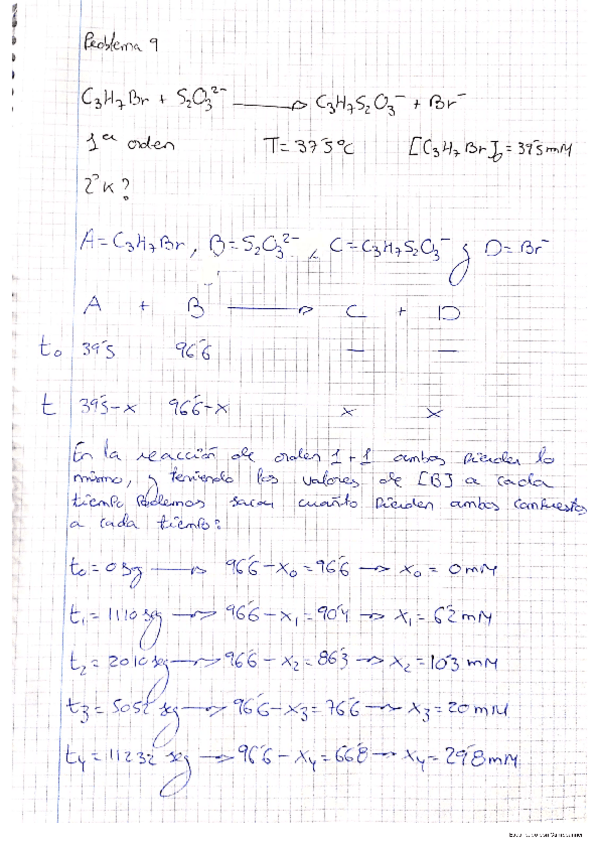 Problema 9
C₃H₇Br + S₂O₃²⁻ → C₃H₇S₂O₃⁻ + Br⁻
1ª orden T = 37'5ºC [C₃H₇Br]₀ = 39'5 mM
¿K?
A = C₃H₇Br, B = S₂O₃²⁻, C = C₃H₇S₂O₃⁻ y D = Br⁻
A + B → C + D
t₀ 39'5 96'6 — —
t 39'5-x 96'6-x x x
En la reacción de orden 1+1 ambos pierden lo
mismo, y teniendo los valores de [B] a cada
tiempo, podemos sacar cuánto pierden ambos compuestos
a cada tiempo:
t₀ = 0 sg → 96'6 - x₀ = 96'6 → x₀ = 0 mM
t₁ = 1110 seg → 96'6 - x₁ = 90'4 → x₁ = 6'2 mM
t₂ = 2010 seg → 96'6 - x₂ = 86'3 → x₂ = 10'3 mM
t₃ = 5052 seg → 96'6 - x₃ = 76'6 → x₃ = 20 mM
t₄ = 11232 seg → 96'6 - x₄ = 66'8 → x₄ = 29'8 mM